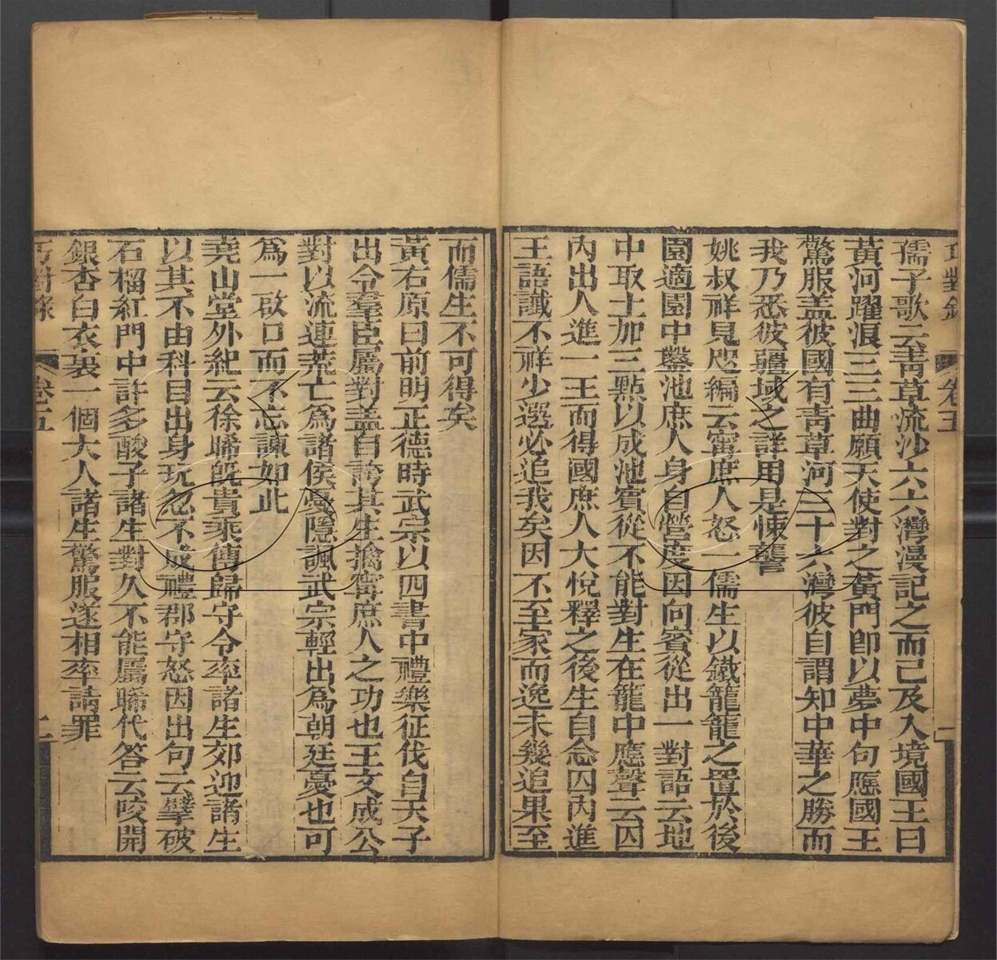 巧對錄
卷五
孺子歌云靑草流沙六六灣漫記之而已及入境國王曰
黃河躍浪三三曲願天使對之黃門卽以夢中句應國王
驚服盖彼國有靑草河三十六灣彼自謂知中華之勝而
我乃悉彼疆域之詳用是悚讋
姚叔祥見只編云甯庶人怒一儒生以鐵籠籠之置於後
園適園中鑿池庶人身自營度因向賓從出一對語云地
中取土加三點以成池賓從不能對生在籠中應聲云囚
內出人進一王而得國庶人大悅釋之後生自念囚內進
王語讖不祥少選必追我矣因不至家而逸未幾追果至
而儒生不可得矣
黃右原曰前明正德時武宗以四書中禮樂征伐自天子
出令羣臣屬對盖自誇其生擒甯庶人之功也王文成公
對以流連荒亡爲諸侯憂隱諷武宗輕出爲朝廷憂也可
爲一啟口而不忘諫如此
堯山堂外紀云徐晞旣貴乘傳歸守令率諸生郊迎諸生
以其不由科目出身玩忽不成禮郡守怒因出句云擘破
石榴紅門中許多酸子諸生對久不能屬晞代答云咬開
銀杏白衣裏一個大人諸生驚服遂相率請罪
巧對錄
卷五
二